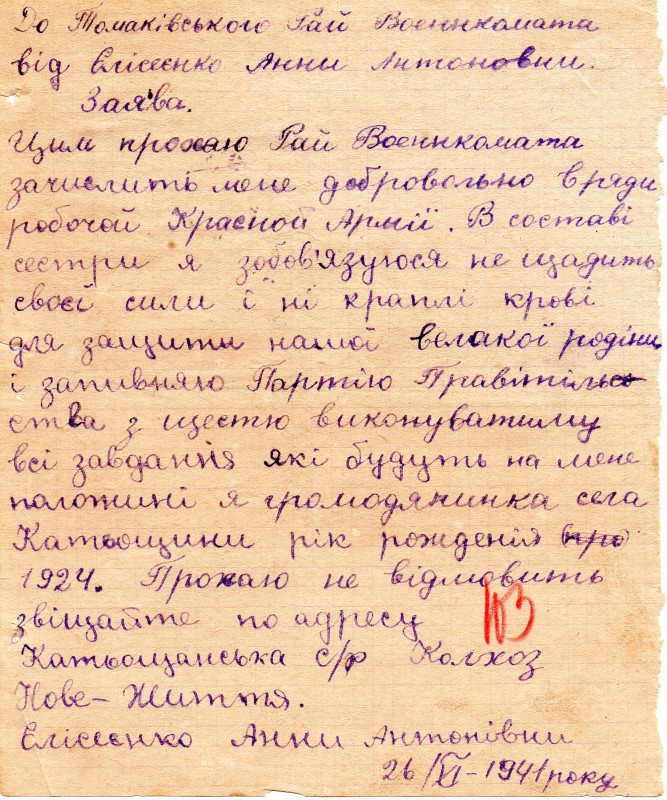 До Томаківського Рай Военнкомата
від Елісєєнко Анни Антоновни.
Заява.
Цим прохаю Рай Военнкомата
зачислить мене добровольно в ряди
робочой Красной Армії. В составі
сестри я зобов'язуюся не щадить
своєї сили і ні краплі крові
для защити нашої велакої родіни
і запивняю Партію Правітільсо
ства з щестю виконуватиму
всі завдання які будуть на мене
положині я громодянинка села
Катьощини рік рожденія про
1924. Прохаю не відмовить
звіщайте по адресу
103
Катьощанська с/р Колхоз
Нове-Життя.
Елісєєнко Анни Антонівни
26/VI-1941 року